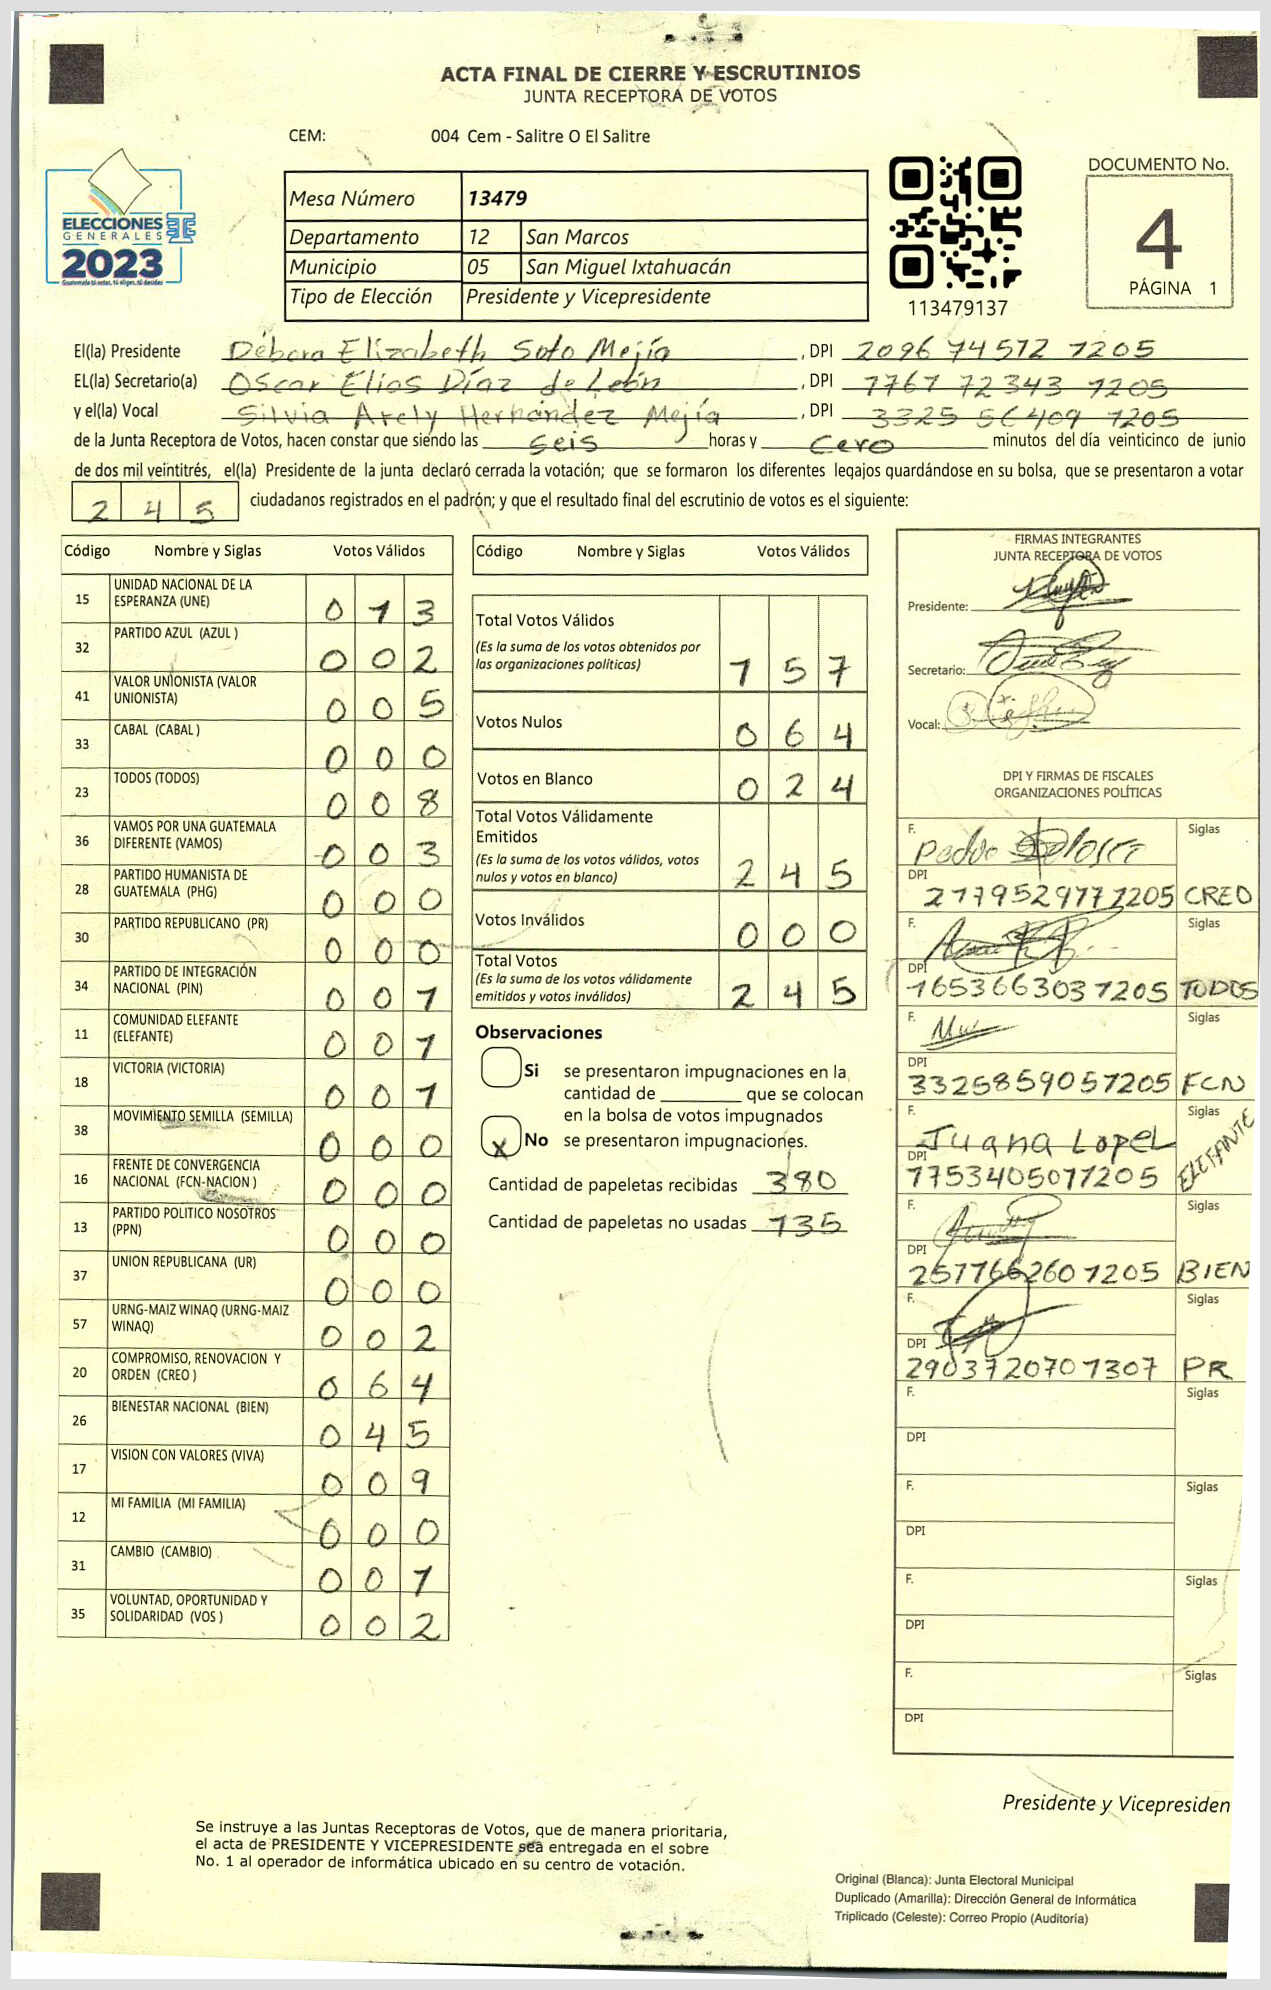 ACTA FINAL DE CIERRE Y ESCRUTINIOS
JUNTA RECEPTORA DE VOTOS
CEM: 004 Cem - Salitre O El Salitre
ELECCIONES
GENERALES
2023
Guatemala tú votas, tú eliges, tú decides
Mesa Número 13479
Departamento 12 San Marcos
Municipio 05 San Miguel Ixtahuacán
Tipo de Elección Presidente y Vicepresidente
113479137
DOCUMENTO No.
4
PÁGINA 1
El(la) Presidente Débora Elizabeth Soto Mejía , DPI 2096 74512 1205
EL(la) Secretario(a) Oscar Elios Díaz de León , DPI 1767 72343 1205
y el(la) Vocal Silvia Arely Hernández Mejía , DPI 3325 56409 1205
de la Junta Receptora de Votos, hacen constar que siendo las seis horas y cero minutos del día veinticinco de junio
de dos mil veintitrés, el(la) Presidente de la junta declaró cerrada la votación; que se formaron los diferentes legajos guardándose en su bolsa, que se presentaron a votar
245 ciudadanos registrados en el padrón; y que el resultado final del escrutinio de votos es el siguiente:
Código Nombre y Siglas Votos Válidos
15 UNIDAD NACIONAL DE LA ESPERANZA (UNE) 0 1 3
32 PARTIDO AZUL (AZUL ) 0 0 2
41 VALOR UNIONISTA (VALOR UNIONISTA) 0 0 5
33 CABAL (CABAL ) 0 0 0
23 TODOS (TODOS) 0 0 8
36 VAMOS POR UNA GUATEMALA DIFERENTE (VAMOS) 0 0 3
28 PARTIDO HUMANISTA DE GUATEMALA (PHG) 0 0 0
30 PARTIDO REPUBLICANO (PR) 0 0 0
34 PARTIDO DE INTEGRACIÓN NACIONAL (PIN) 0 0 1
11 COMUNIDAD ELEFANTE (ELEFANTE) 0 0 1
18 VICTORIA (VICTORIA) 0 0 1
38 MOVIMIENTO SEMILLA (SEMILLA) 0 0 0
16 FRENTE DE CONVERGENCIA NACIONAL (FCN-NACION ) 0 0 0
13 PARTIDO POLITICO NOSOTROS (PPN) 0 0 0
37 UNION REPUBLICANA (UR) 0 0 0
57 URNG-MAIZ WINAQ (URNG-MAIZ WINAQ) 0 0 2
20 COMPROMISO, RENOVACION Y ORDEN (CREO ) 0 6 4
26 BIENESTAR NACIONAL (BIEN) 0 4 5
17 VISION CON VALORES (VIVA) 0 0 9
12 MI FAMILIA (MI FAMILIA) 0 0 0
31 CAMBIO (CAMBIO) 0 0 1
35 VOLUNTAD, OPORTUNIDAD Y SOLIDARIDAD (VOS ) 0 0 2
Código Nombre y Siglas Votos Válidos
Total Votos Válidos
(Es la suma de los votos obtenidos por
las organizaciones políticas) 1 5 7
Votos Nulos 0 6 4
Votos en Blanco 0 2 4
Total Votos Válidamente
Emitidos
(Es la suma de los votos válidos, votos
nulos y votos en blanco) 2 4 5
Votos Inválidos 0 0 0
Total Votos
(Es la suma de los votos válidamente
emitidos y votos inválidos) 2 4 5
Observaciones
Si se presentaron impugnaciones en la
cantidad de ________ que se colocan
en la bolsa de votos impugnados
X No se presentaron impugnaciones.
Cantidad de papeletas recibidas 380
Cantidad de papeletas no usadas 135
FIRMAS INTEGRANTES
JUNTA RECEPTORA DE VOTOS
Presidente:
Secretario:
Vocal:
DPI Y FIRMAS DE FISCALES
ORGANIZACIONES POLÍTICAS
F. Pedro Siglas
DPI 2179529771205 CREO
F. Siglas
DPI 1653663031205 TODOS
F. Siglas
DPI 3325859051205 FCN
F. Juana Lopez Siglas
DPI 1753405071205 ELEFANTE
F. Siglas
DPI 2577662601205 BIEN
F. Siglas
DPI 2903720701307 PR
F. Siglas
DPI
F. Siglas
DPI
F. Siglas
DPI
F. Siglas
DPI
Presidente y Vicepresiden
Se instruye a las Juntas Receptoras de Votos, que de manera prioritaria,
el acta de PRESIDENTE Y VICEPRESIDENTE sea entregada en el sobre
No. 1 al operador de informática ubicado en su centro de votación.
Original (Blanca): Junta Electoral Municipal
Duplicado (Amarilla): Dirección General de Informática
Triplicado (Celeste): Correo Propio (Auditoría)